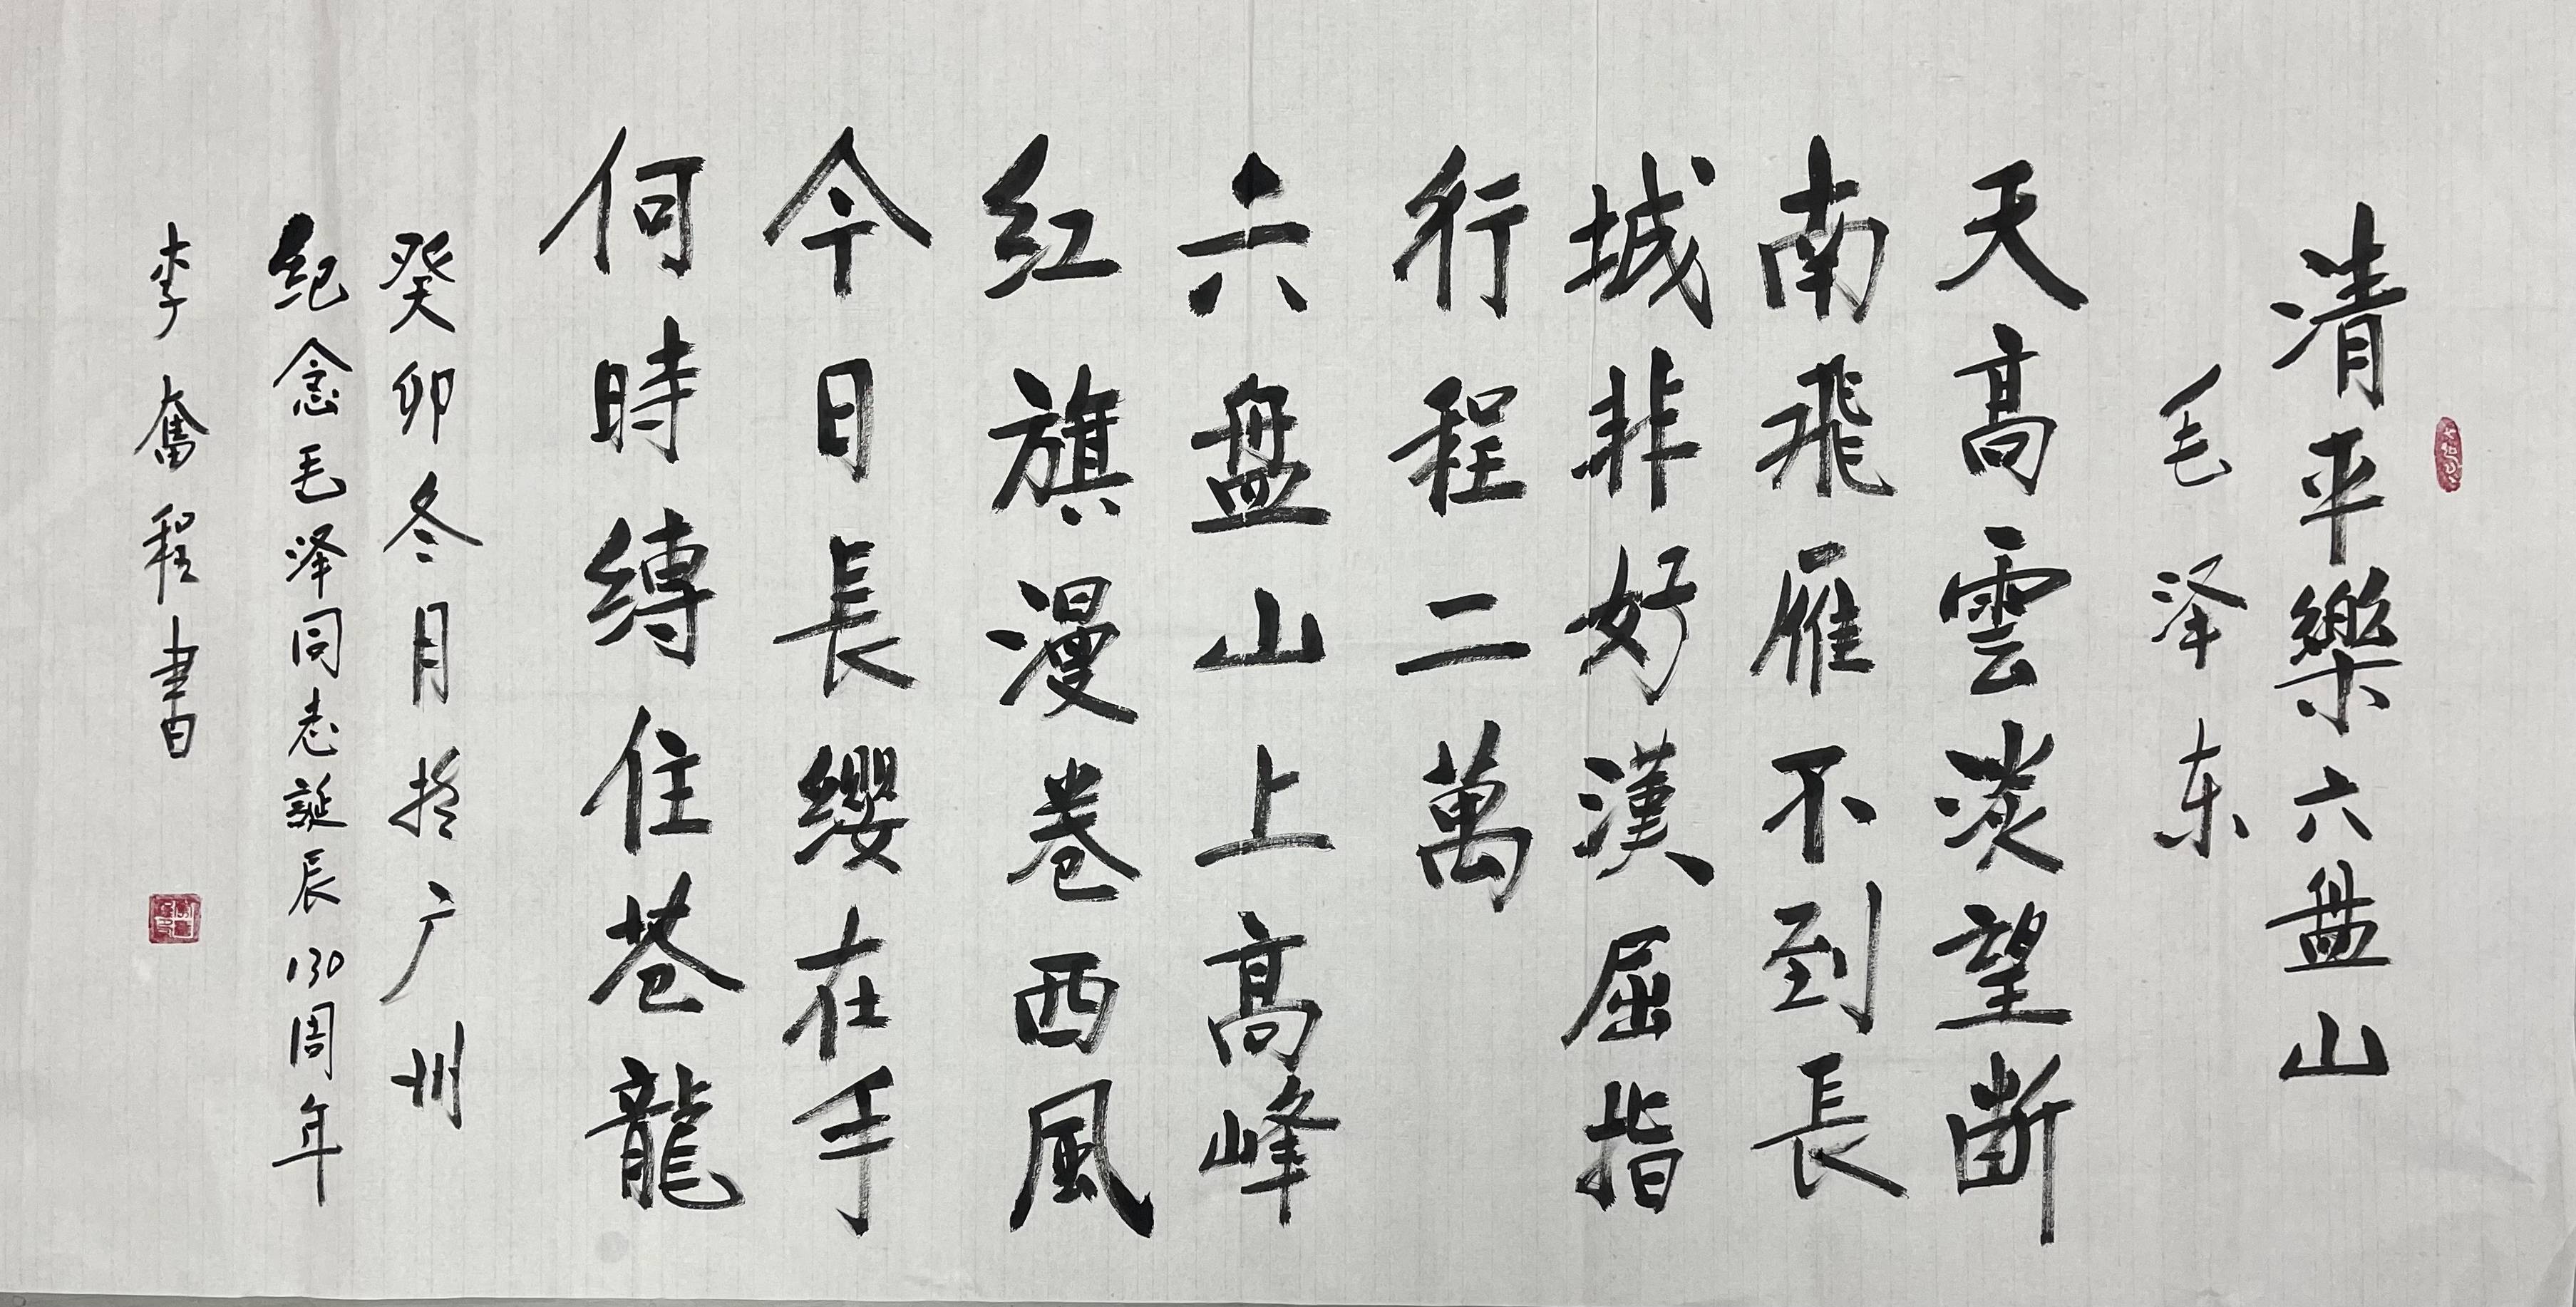 清平樂六盘山
毛泽东
天高雲淡望断
南飛雁不到長
城非好漢屈指
行程二萬
六盘山上高峰
红旗漫卷西風
今日長缨在手
何時縛住苍龍
癸卯冬月於广州
纪念毛泽同志誕辰130周年
李奮程書